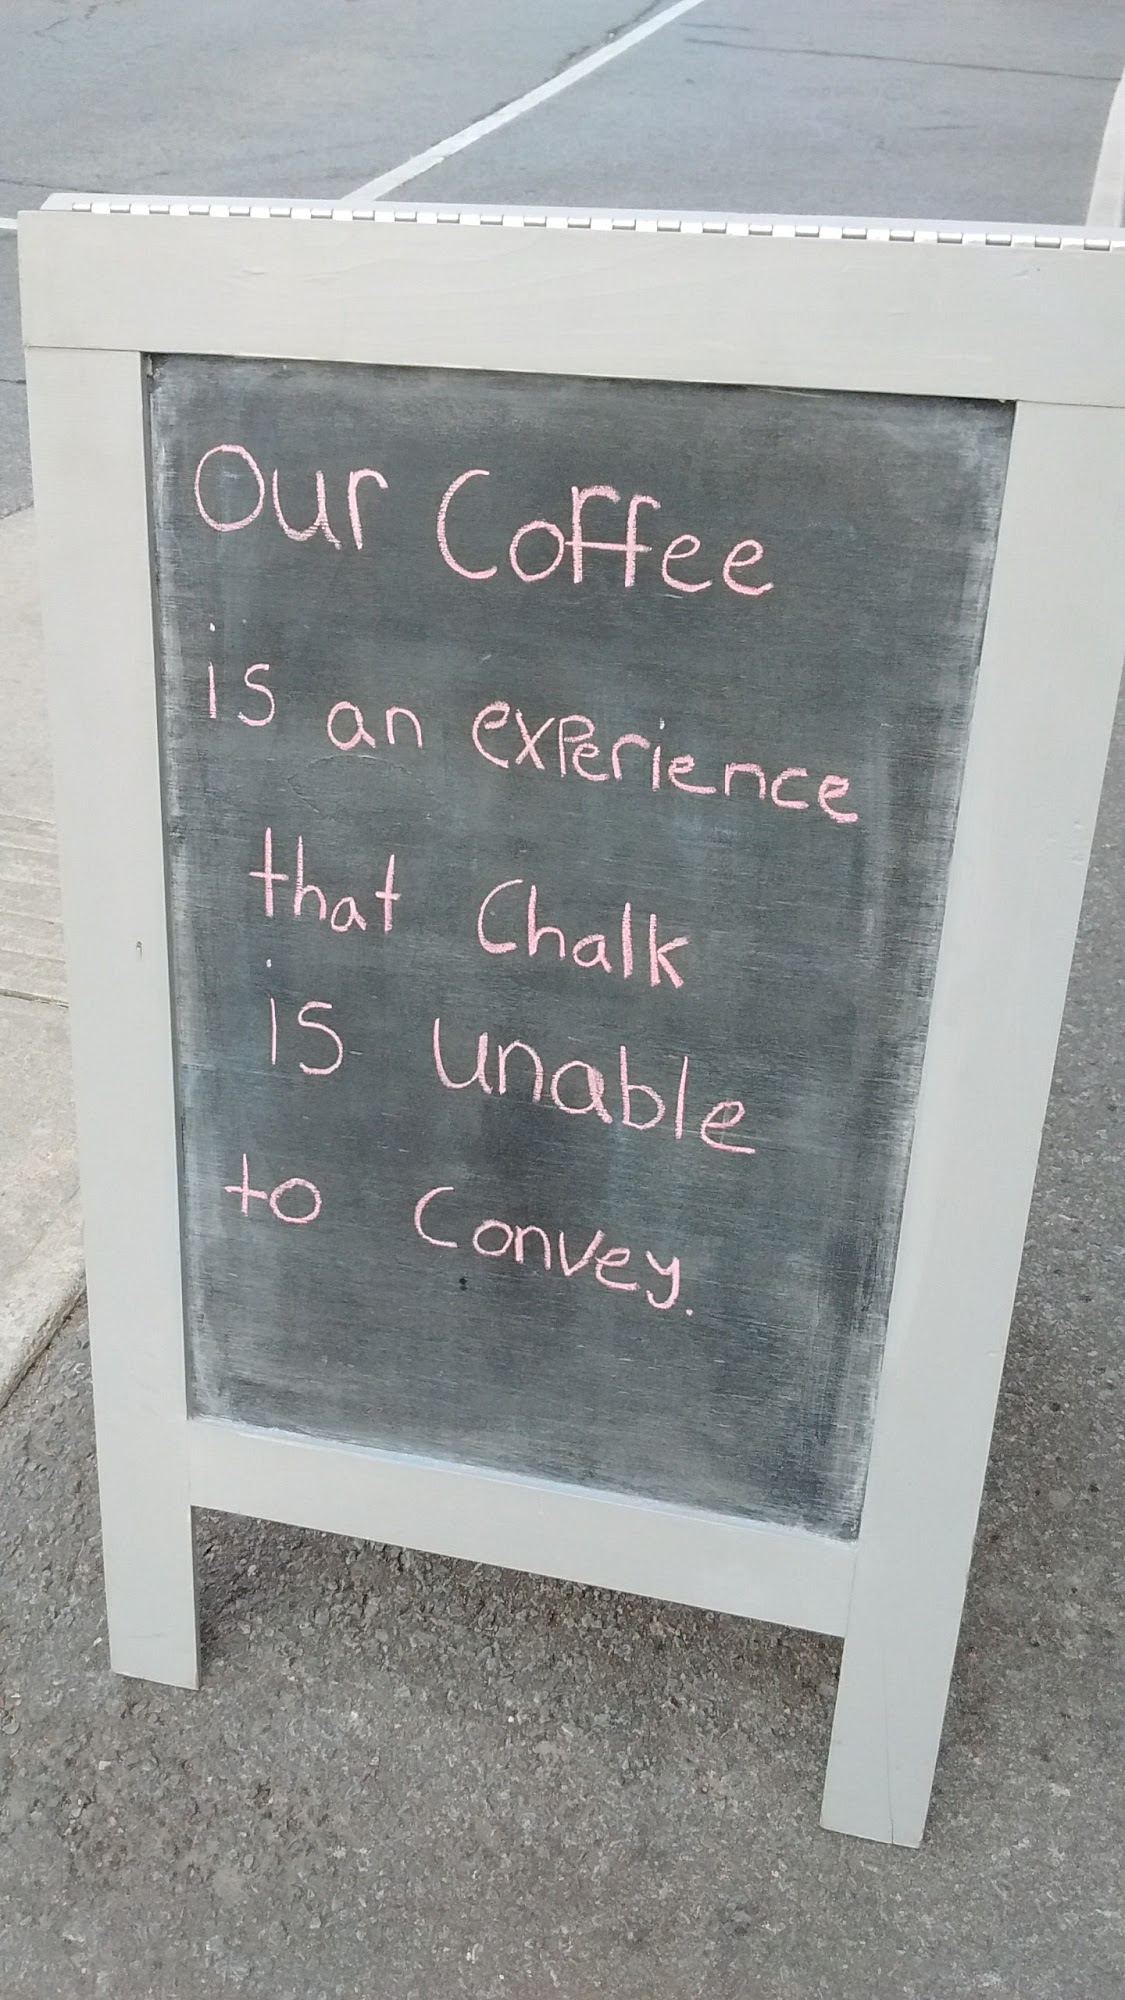 Our Coffee
is an experience
that Chalk
is unable
to Convey.